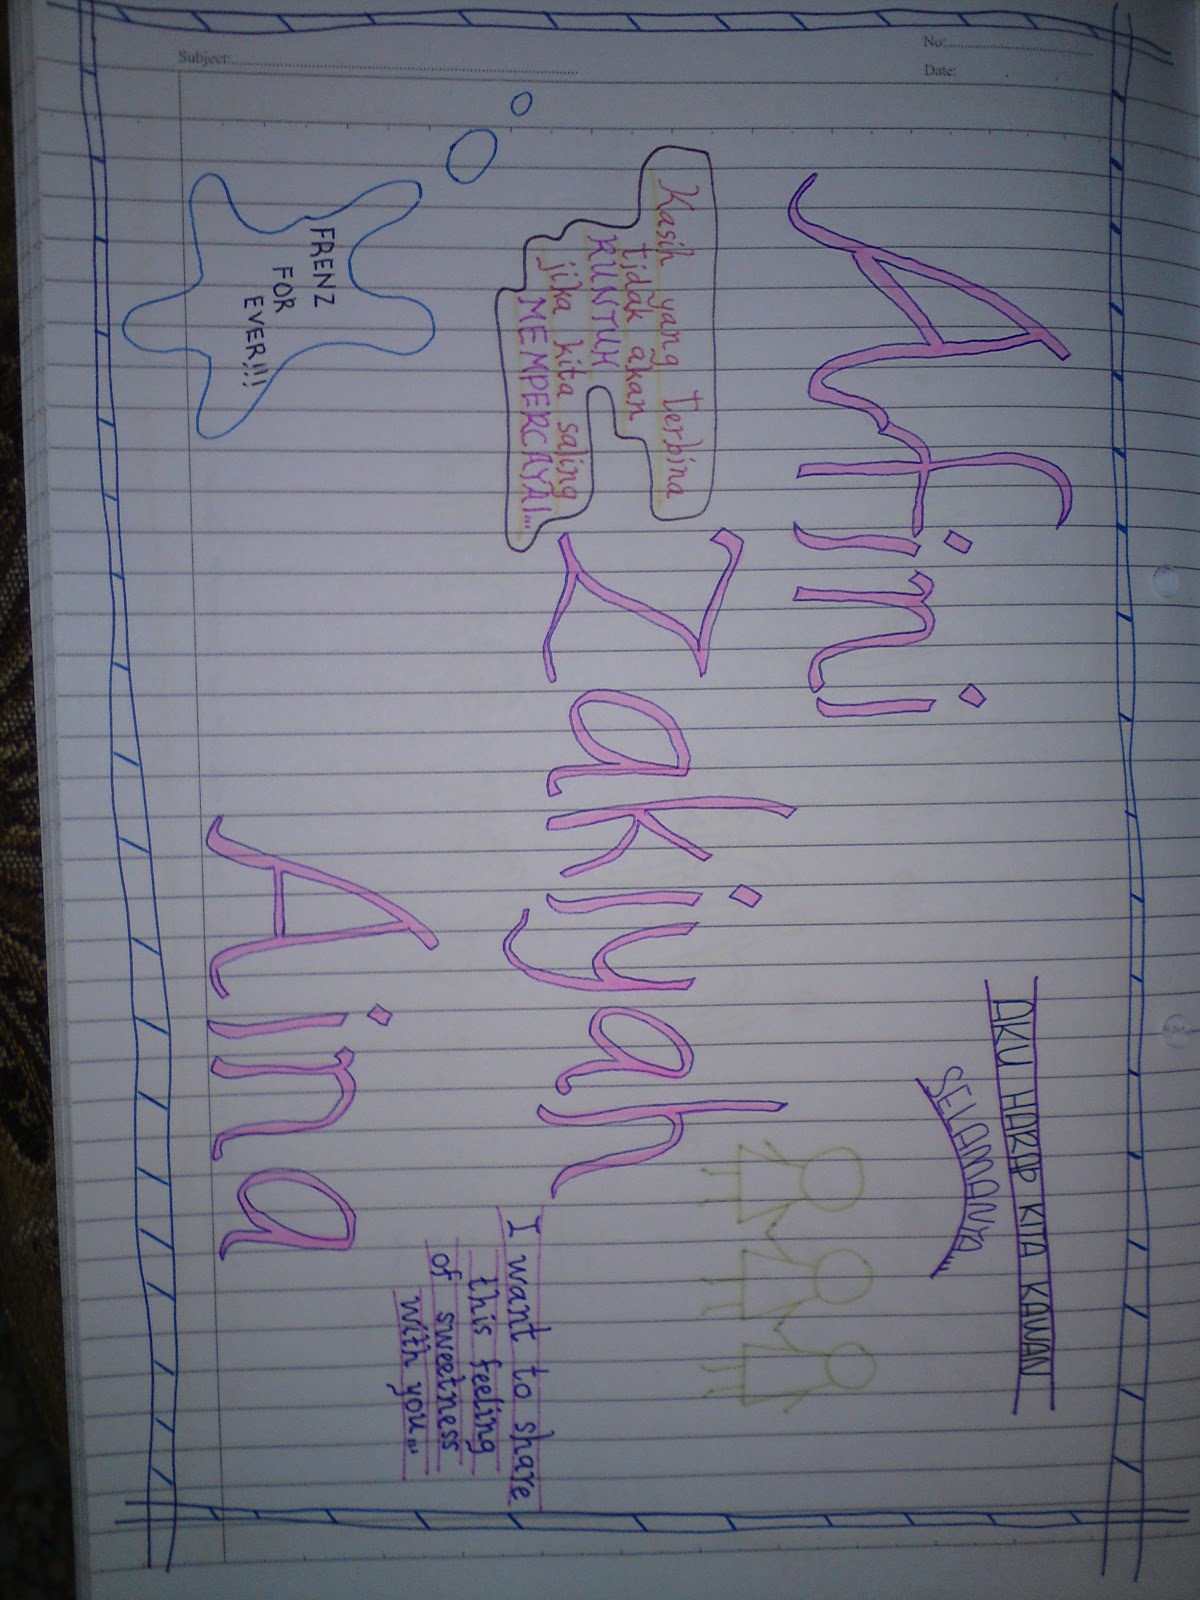 No:
Date:
Subject:
Afini
AKU HARAP KITA KAWAN
SELAMANYA
Kasih yang terbina
tidak akan
RUNTUH
jika kita saling
MEMPERCAYAI...
Zakiyah
I want to share
this feeling
of sweetness
with you...
FRENZ
FOR
EVER!!!
Aina